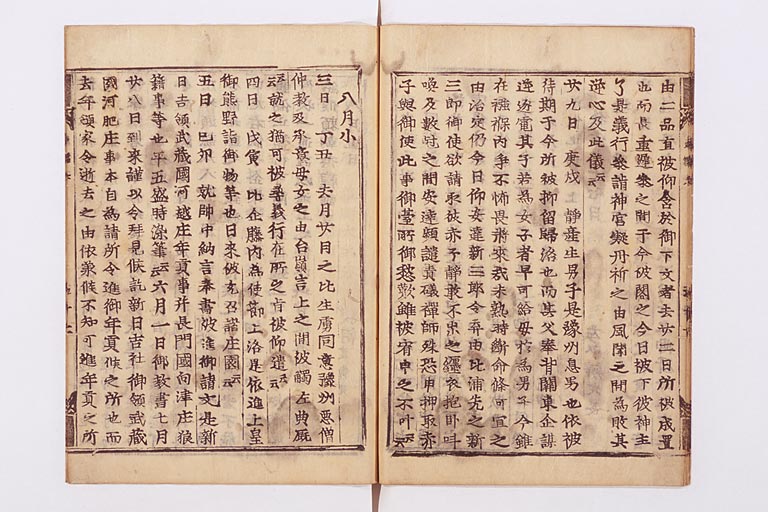 由二品直被仰含於御下文者去廿二日所被成置
也而長重遅参之間于今被閣之今日被下彼神主
了是義行参詣神宮凝丹祈之由風聞之間為敗其
逆心及此儀云云
廿九日 庚戌 静産生男子是豫州息男也依被
待期于今所被抑留歸洛也而其父奉背關東企謀
逆逐電其子若為女子者早可給母於為男子今雖
在襁褓内争不怖畏将來哉未熟時断命條可宜之
由治定仍今日仰安達新三郎令弃由比浦先之新
三郎御使欲請取彼赤子静敢不出之纒衣抱臥叫
喚及數尅之間安達頻譴責礒禅師殊恐申押取赤
子與御使此事御臺所御愁歎雖被宥申之不叶云云
八月小
三日 丁丑 去月廿日之比生虜同意豫州悪僧
仲教及承意母女之由台嶺言上之間被觸左典厩
云云訪之猶可被尋義行在所之旨被仰遣云云
四日 戊寅 比企藤内為使御上洛是依進上皇
御熊野詣御物等也日來被充召諸庄園云云
五日 己卯 以帥中納言奉書被進御請文是新
日吉領武蔵國河越庄年貢事幷長門國向津庄狼
藉事等也平五盛時染筆云云六月一日御教書七月
廿八日到來謹以令拜見候訖新日吉社御領武蔵
國河肥庄事本自為請所令進御年貢候之所也而
去年領家令逝去之由依承候不知可進年貢之所